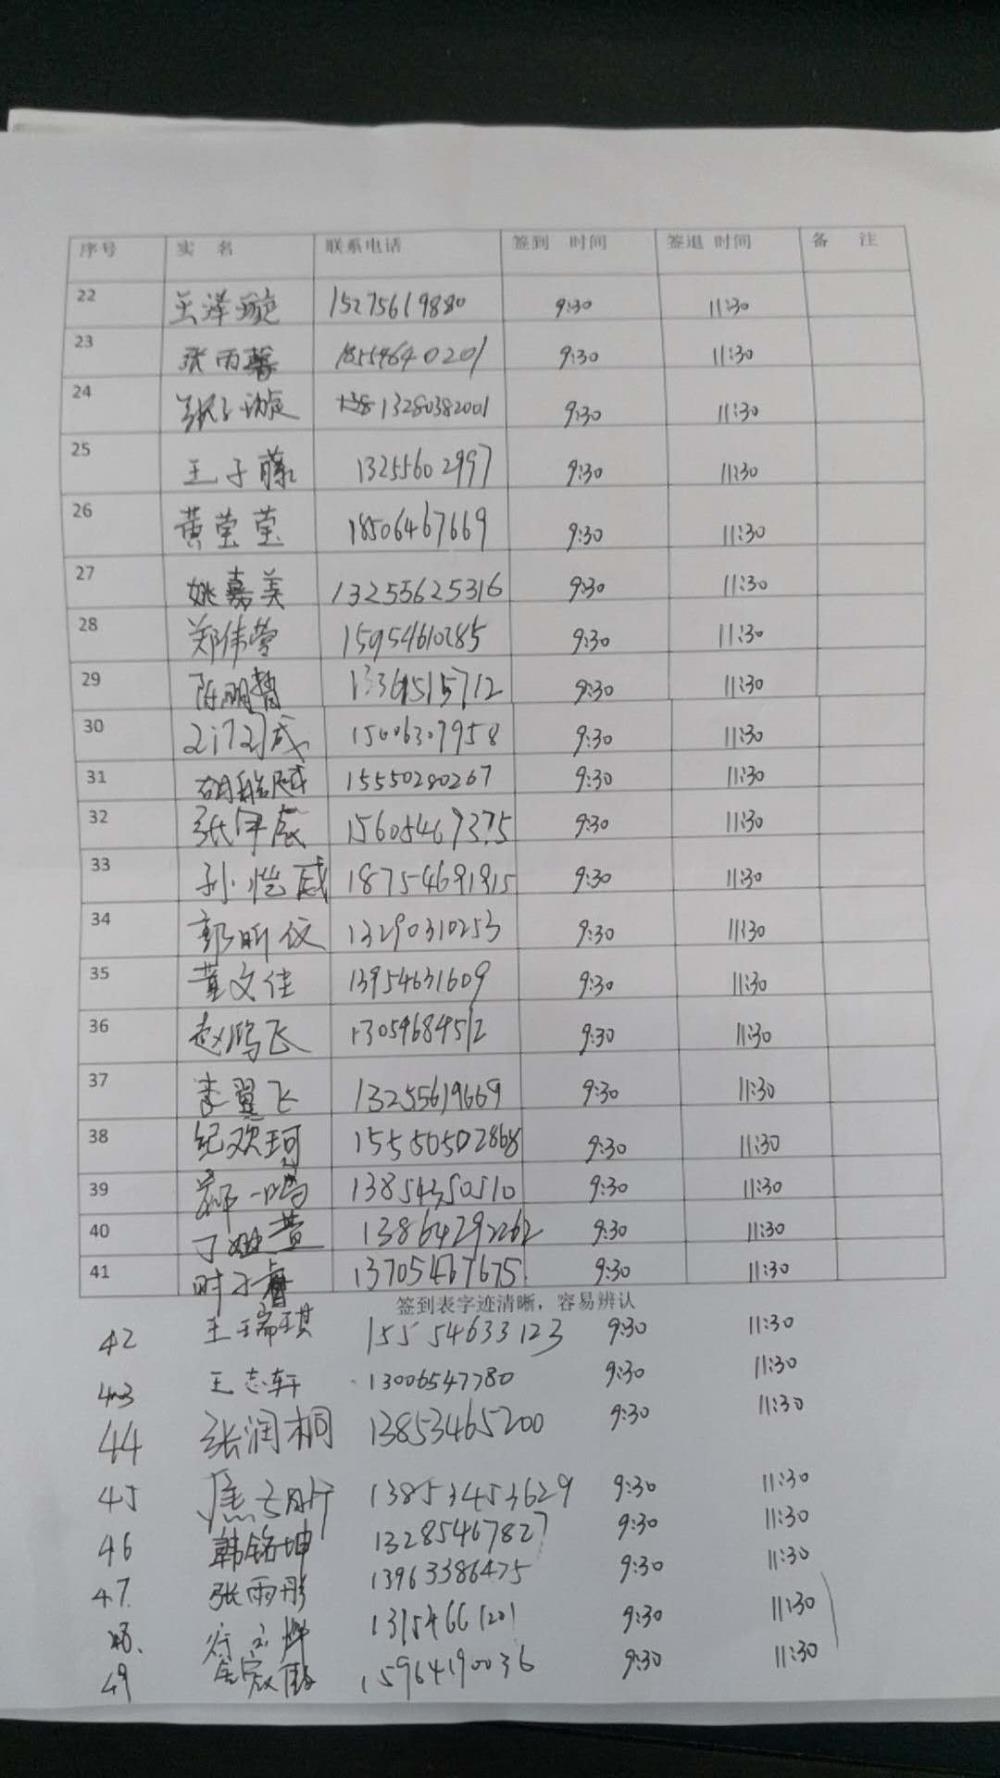 序号 实 名 联系电话 签到 时间 签退 时间 备 注
22 王泽璇 15275619880 9:30 11:30
23 张雨馨 18554640201 9:30 11:30
24 张子璇 13280382001 9:30 11:30
25 王子藤 13255602997 9:30 11:30
26 黄莹莹 18506467669 9:30 11:30
27 姚嘉美 13255625316 9:30 11:30
28 郑伟莹 15954610285 9:30 11:30
29 陈明哲 13361515712 9:30 11:30
30 15006307958 9:30 11:30
31 15550280267 9:30 11:30
32 15605467375 9:30 11:30
33 孙恺威 18754691915 9:30 11:30
34 郭昕仪 13290310253 9:30 11:30
35 董文佳 13954631609 9:30 11:30
36 赵鸿飞 13054684512 9:30 11:30
37 李翼飞 13255619669 9:30 11:30
38 纪欢珂 15550502868 9:30 11:30
39 一鸣 13854350510 9:30 11:30
40 丁 萱 13864292262 9:30 11:30
41 时子睿 13705467675 9:30 11:30
签到表字迹清晰，容易辨认
42 王瑞琪 15554633123 9:30 11:30
43 王志轩 13006547780 9:30 11:30
44 张润桐 13853465200 9:30 11:30
45 焦 13853453629 9:30 11:30
46 韩铭坤 13285467827 9:30 11:30
47. 张雨彤 13963386475 9:30 11:30
48. 13954661201 9:30 11:30
49 15964190036 9:30 11:30